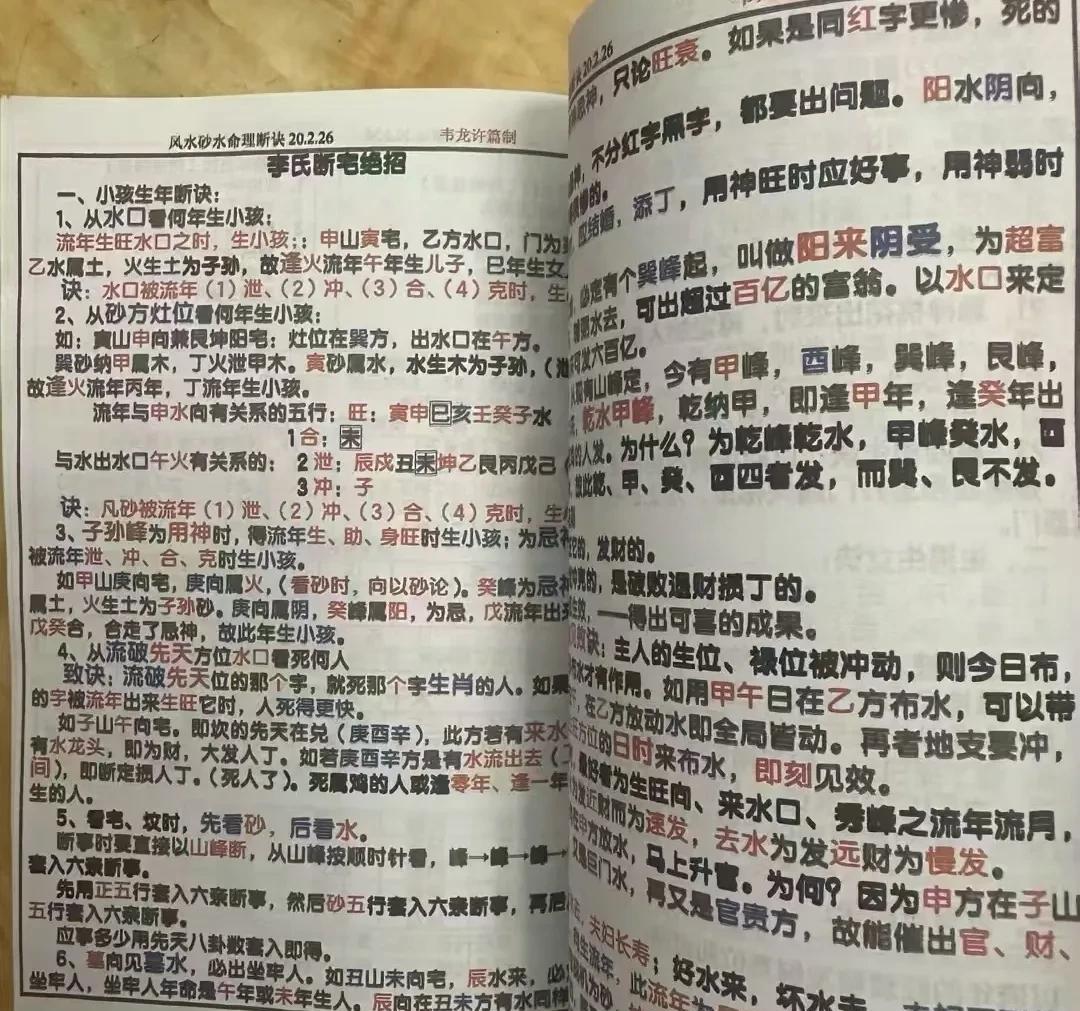 风水砂水命理断诀 20.2.26 韦龙许篇制
李氏断宅绝招
一、小孩生年断诀：
1、从水口看何年生小孩：
流年生旺水口之时，生小孩；：申山寅宅，乙方水口，门为
乙水属土，火生土为子孙，故逢火流年午年生儿子，巳年生女
诀：水口被流年（1）泄、（2）冲、（3）合、（4）克时，生
2、从砂方灶位看何年生小孩：
如：寅山申向兼艮坤阳宅：灶位在巽方，出水口在午方。
巽砂纳甲属木，丁火泄甲木。寅砂属水，水生木为子孙，（
故逢火流年丙年，丁流年生小孩。
流年与申水向有关系的五行：旺：寅申巳亥壬癸子水
1合：未
与水出水口午火有关系的： 2泄：辰戍丑未坤乙艮丙戊己
3冲：子
诀：凡砂被流年（1）泄、（2）冲、（3）合、（4）克时，生
3、子孙峰为用神时，得流年生、助、身旺时生小孩；为忌
被流年泄、冲、合、克时生小孩。
如甲山庚向宅，庚向属火，（看砂时，向以砂论）。癸峰为忌
属土，火生土为子孙砂。庚向属阴，癸峰属阳，为忌，戊流年出
戊癸合，合走了忌神，故此年生小孩。
4、从流破先天方位水口看死何人
致诀：流破先天位的那个字，就死那个字生肖的人。如果
的字被流年出来生旺它时，人死得更快。
如子山午向宅。即坎的先天在兑（庚酉辛），此方若有来水
有水龙头，即为财，大发人丁。如若庚酉辛方是有水流出去（
间），即断定损人丁。（死人了）。死属鸡的人或逢零年、逢一年
生的人。
5、看宅、坟时，先看砂，后看水。
断事时要直接以山峰断，从山峰按顺时针看，峰→峰→峰→
套入六亲断事。
先用正五行套入六亲断事，然后砂五行套入六亲断事，再
五行套入六亲断事。
应事多少用先天八卦数套入即得。
6、墓向见墓水，必出坐牢人。如丑山未向宅，辰水来，必
坐牢人，坐牢人年命是午年或未年生人。辰向在丑未方有水同样
20.2.26
忌神，只论旺衰。如果是同红字更惨，死的
不分红字黑字，都要出问题。阳水阴向，
惨的。
应结婚，添丁，用神旺时应好事，用神弱时
必定有个巽峰起，叫做阳来阴受，为超富
水去，可出超过百亿的富翁。以水口来定
可发六百亿。
有山峰定，今有甲峰，酉峰，巽峰，艮峰，
乾水甲峰，乾纳甲，即逢甲年，逢癸年出
的人发。为什么？为乾峰乾水，甲峰癸水，酉
故此乾、甲、癸、酉四者发，而巽、艮不发。
的，发财的。
的，是破败退财损丁的。
——得出可喜的成果。
诀：主人的生位、禄位被冲动，则今日布，
水才有作用。如用甲午日在乙方布水，可以带
，在乙方放动水即全局皆动。再者地支要冲，
方位的日时来布水，即刻见效。
最好者为生旺向、来水口、秀峰之流年流月，
为发近财而为速发，去水为发远财为慢发。
申方放水，马上升官。为何？因为申方在子山
巨门水，再又是官贵方，故能催出官、财、
夫妇长寿；好水来，坏水去
生流年，此流年为